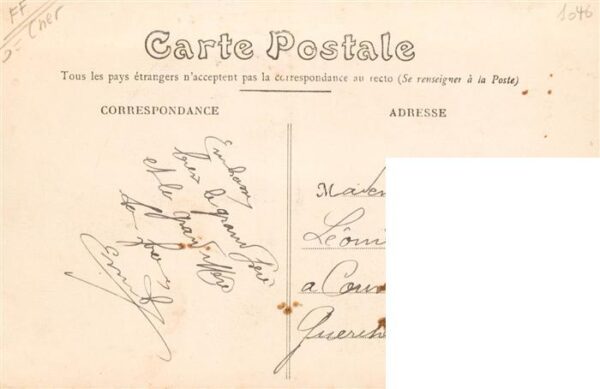 FF
Cher
1046
Carte Postale
Tous les pays étrangers n'acceptent pas la correspondance au recto (Se renseigner à la Poste)
CORRESPONDANCE
ADRESSE
bien le grand Père
et la grand Mère
Madem
Léoni
a Cour
Querch